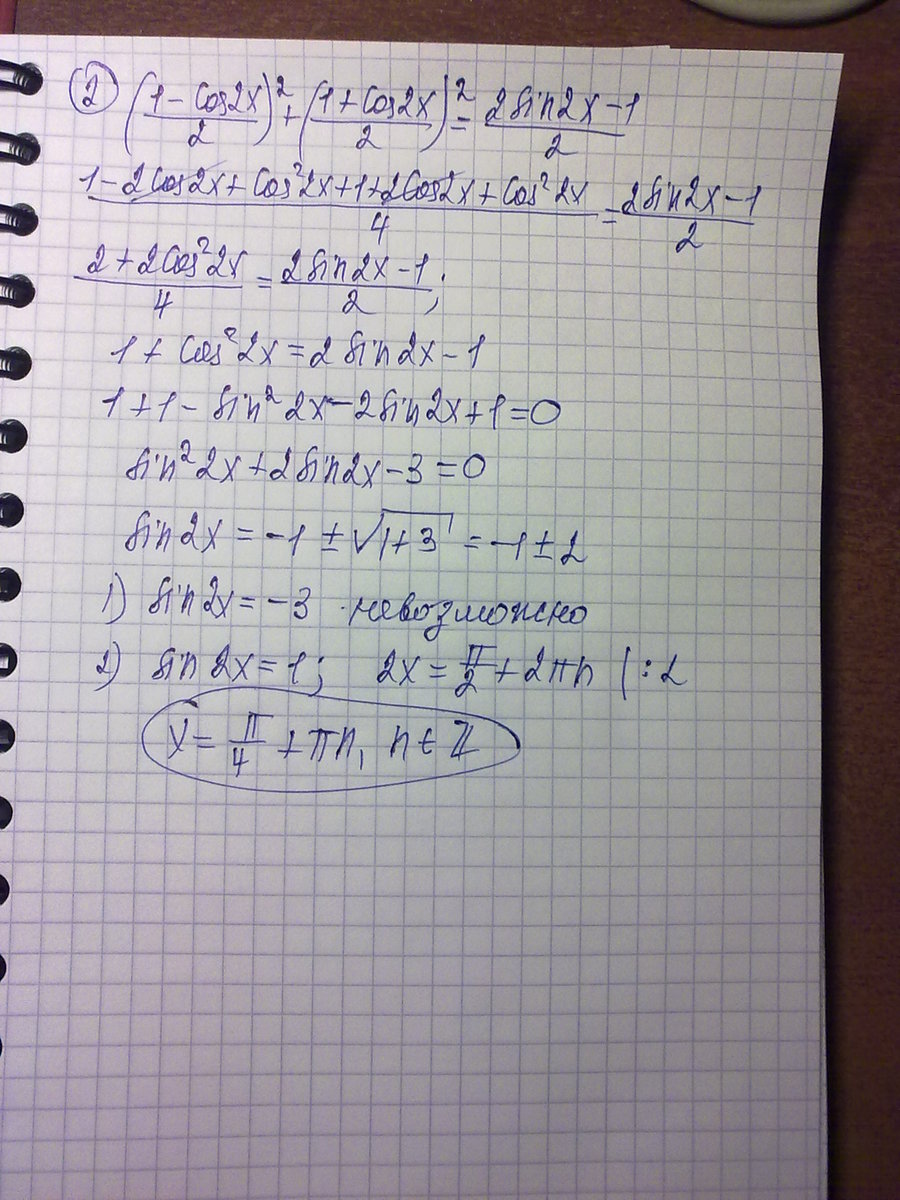 ② ((1-cos2x)/2)² + ((1+cos2x)/2)² = (2sin2x-1)/2
(1-2cos2x+cos²2x+1+2cos2x+cos²2x)/4 = (2sin2x-1)/2
(2+2cos²2x)/4 = (2sin2x-1)/2;
1+cos²2x=2sin2x-1
1+1-sin²2x-2sin2x+1=0
sin²2x+2sin2x-3=0
sin2x=-1±√(1+3)=-1±2
1) sin2x=-3 невозможно
2) sin2x=1; 2x=π/2+2πn |:2
x=π/4+πn, n∈Z